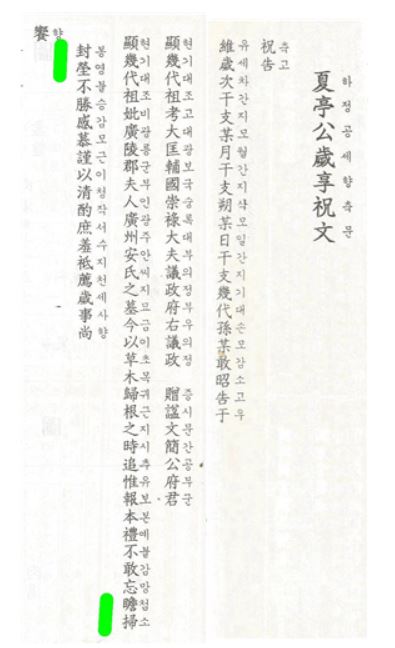 夏亭公歲享祝文
하정공세향축문
祝告
축고
維歲次干支某月干支朔某日干支幾代孫某敢昭告于
유세차간지모월간지삭모일간지기대손모감소고우
顯幾代祖考大匡輔國崇祿大夫議政府右議政 贈諡文簡公府君
현기대조고대광보국숭록대부의정부우의정 증시문간공부군
顯幾代祖妣廣陵郡夫人廣州安氏之墓今以草木歸根之時追惟報本禮不敢忘瞻掃
현기대조비광릉군부인광주안씨지묘금이초목귀근지시추유보본예불감망첨소
封塋不勝感慕謹以清酌庶羞祗薦歲事尚
봉영불승감모근이청작서수지천세사향
饗
향